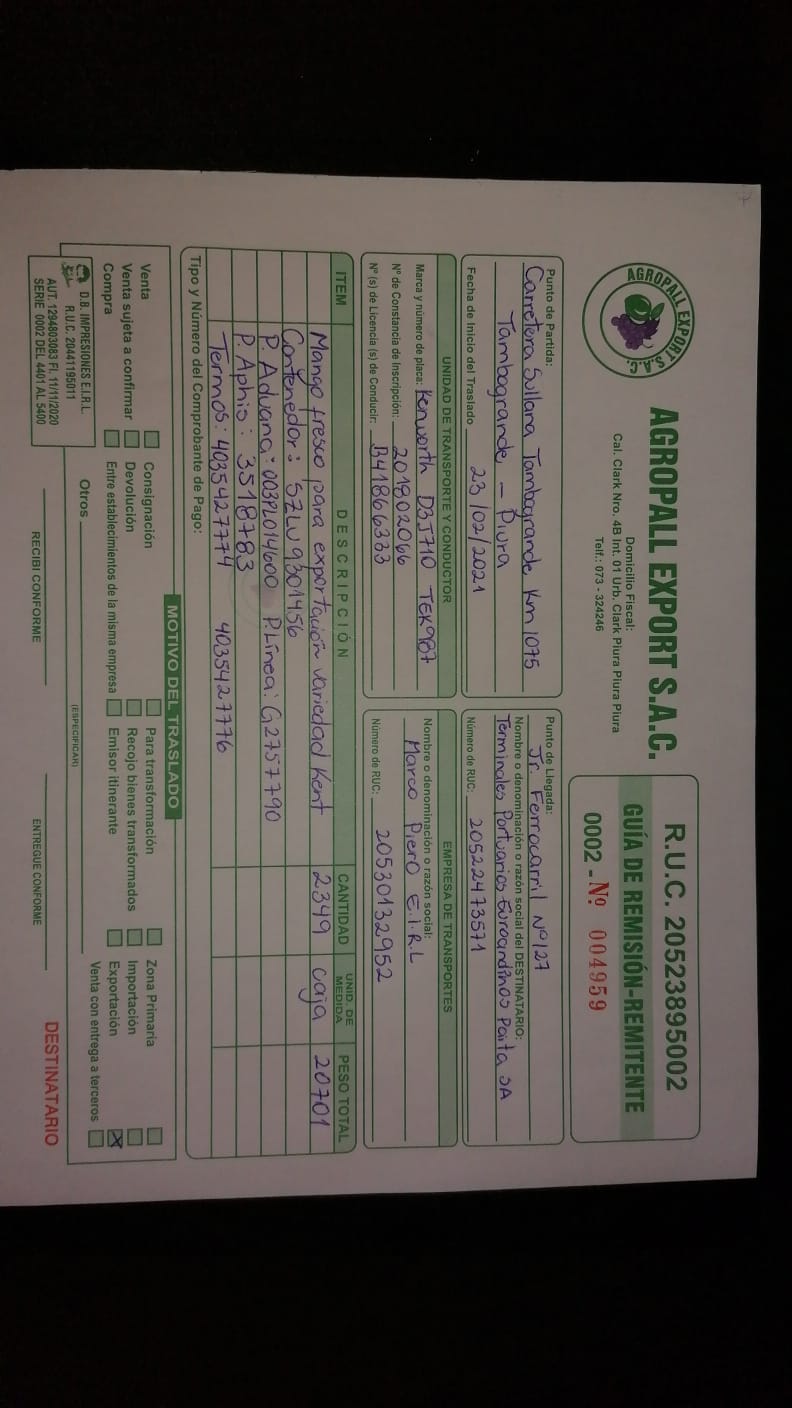 AGROPALL EXPORT S.A.C.
AGROPALL EXPORT S.A.C.
Domicilio Fiscal:
Cal. Clark Nro. 4B Int. 01 Urb. Clark Piura Piura Piura
Telf.: 073 - 324246
R.U.C. 20523895002
GUÍA DE REMISIÓN-REMITENTE
0002 - Nº 004959
Punto de Partida:
Carretera Sullana Tambogrande Km 1075
Tambogrande - Piura
Fecha de Inicio del Traslado 23/02/2021
Punto de Llegada:
Jr. Ferrocarril Nº 127
Nombre o denominación o razón social del DESTINATARIO:
Terminales Portuarios Euroandinos Paita SA
Número de RUC: 20522473571
UNIDAD DE TRANSPORTE Y CONDUCTOR
Marca y número de placa: Kenworth D3J710 TEK987
Nº de Constancia de Inscripción: 201802066
Nº (s) de Licencia (s) de Conducir: B41866333
EMPRESA DE TRANSPORTES
Nombre o denominación o razón social:
Marco Piero E.I.R.L
Número de RUC: 20530132952
ITEM DESCRIPCIÓN CANTIDAD UNID. DE MEDIDA PESO TOTAL
Mango fresco para exportación variedad Kent 2349 caja 20701
Contenedor: SZLU9301456
P. Aduana: 003PL014600 P.Línea: G2757790
P. Aphis: 3518783
Termos: 4035427774 4035427776
Tipo y Número del Comprobante de Pago:
MOTIVO DEL TRASLADO
Venta Consignación Para transformación Zona Primaria
Venta sujeta a confirmar Devolución Recojo bienes transformados Importación
Compra Entre establecimientos de la misma empresa Emisor itinerante Exportación X
Otros Venta con entrega a terceros
(ESPECIFICAR)
D.B. IMPRESIONES E.I.R.L.
R.U.C. 20441195011
AUT. 1294803083 FI. 11/11/2020
SERIE 0002 DEL 4401 AL 5400
RECIBI CONFORME
ENTREGUE CONFORME
DESTINATARIO